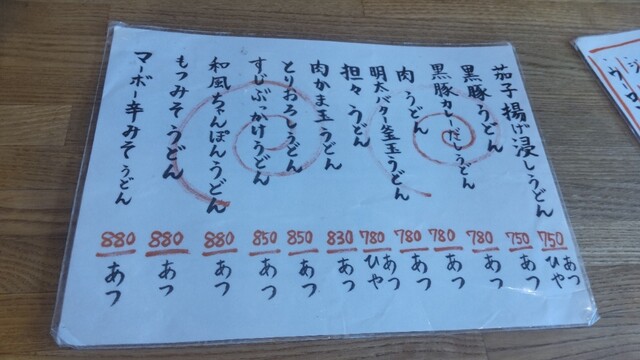 茄子揚げ浸しうどん 750 あつ ひや
黒豚うどん 750 あつ
黒豚カレーだしうどん 780 あつ
肉うどん 780 あつ
明太バター釜玉うどん 780 あつ
担々うどん 780 あつ ひや
肉かま玉うどん 830 あつ
とりおろしうどん 850 あつ
すじぶっかけうどん 850 あつ
和風ちゃんぽんうどん 880 あつ
もつみそうどん 880 あつ
マーボー辛みそうどん 880 あつ